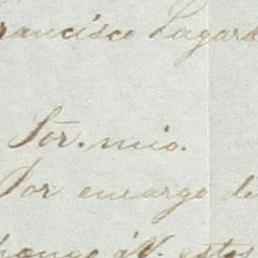 rancisco Lagard
Sor. mio.
Por encargo de
pongo á V. estos